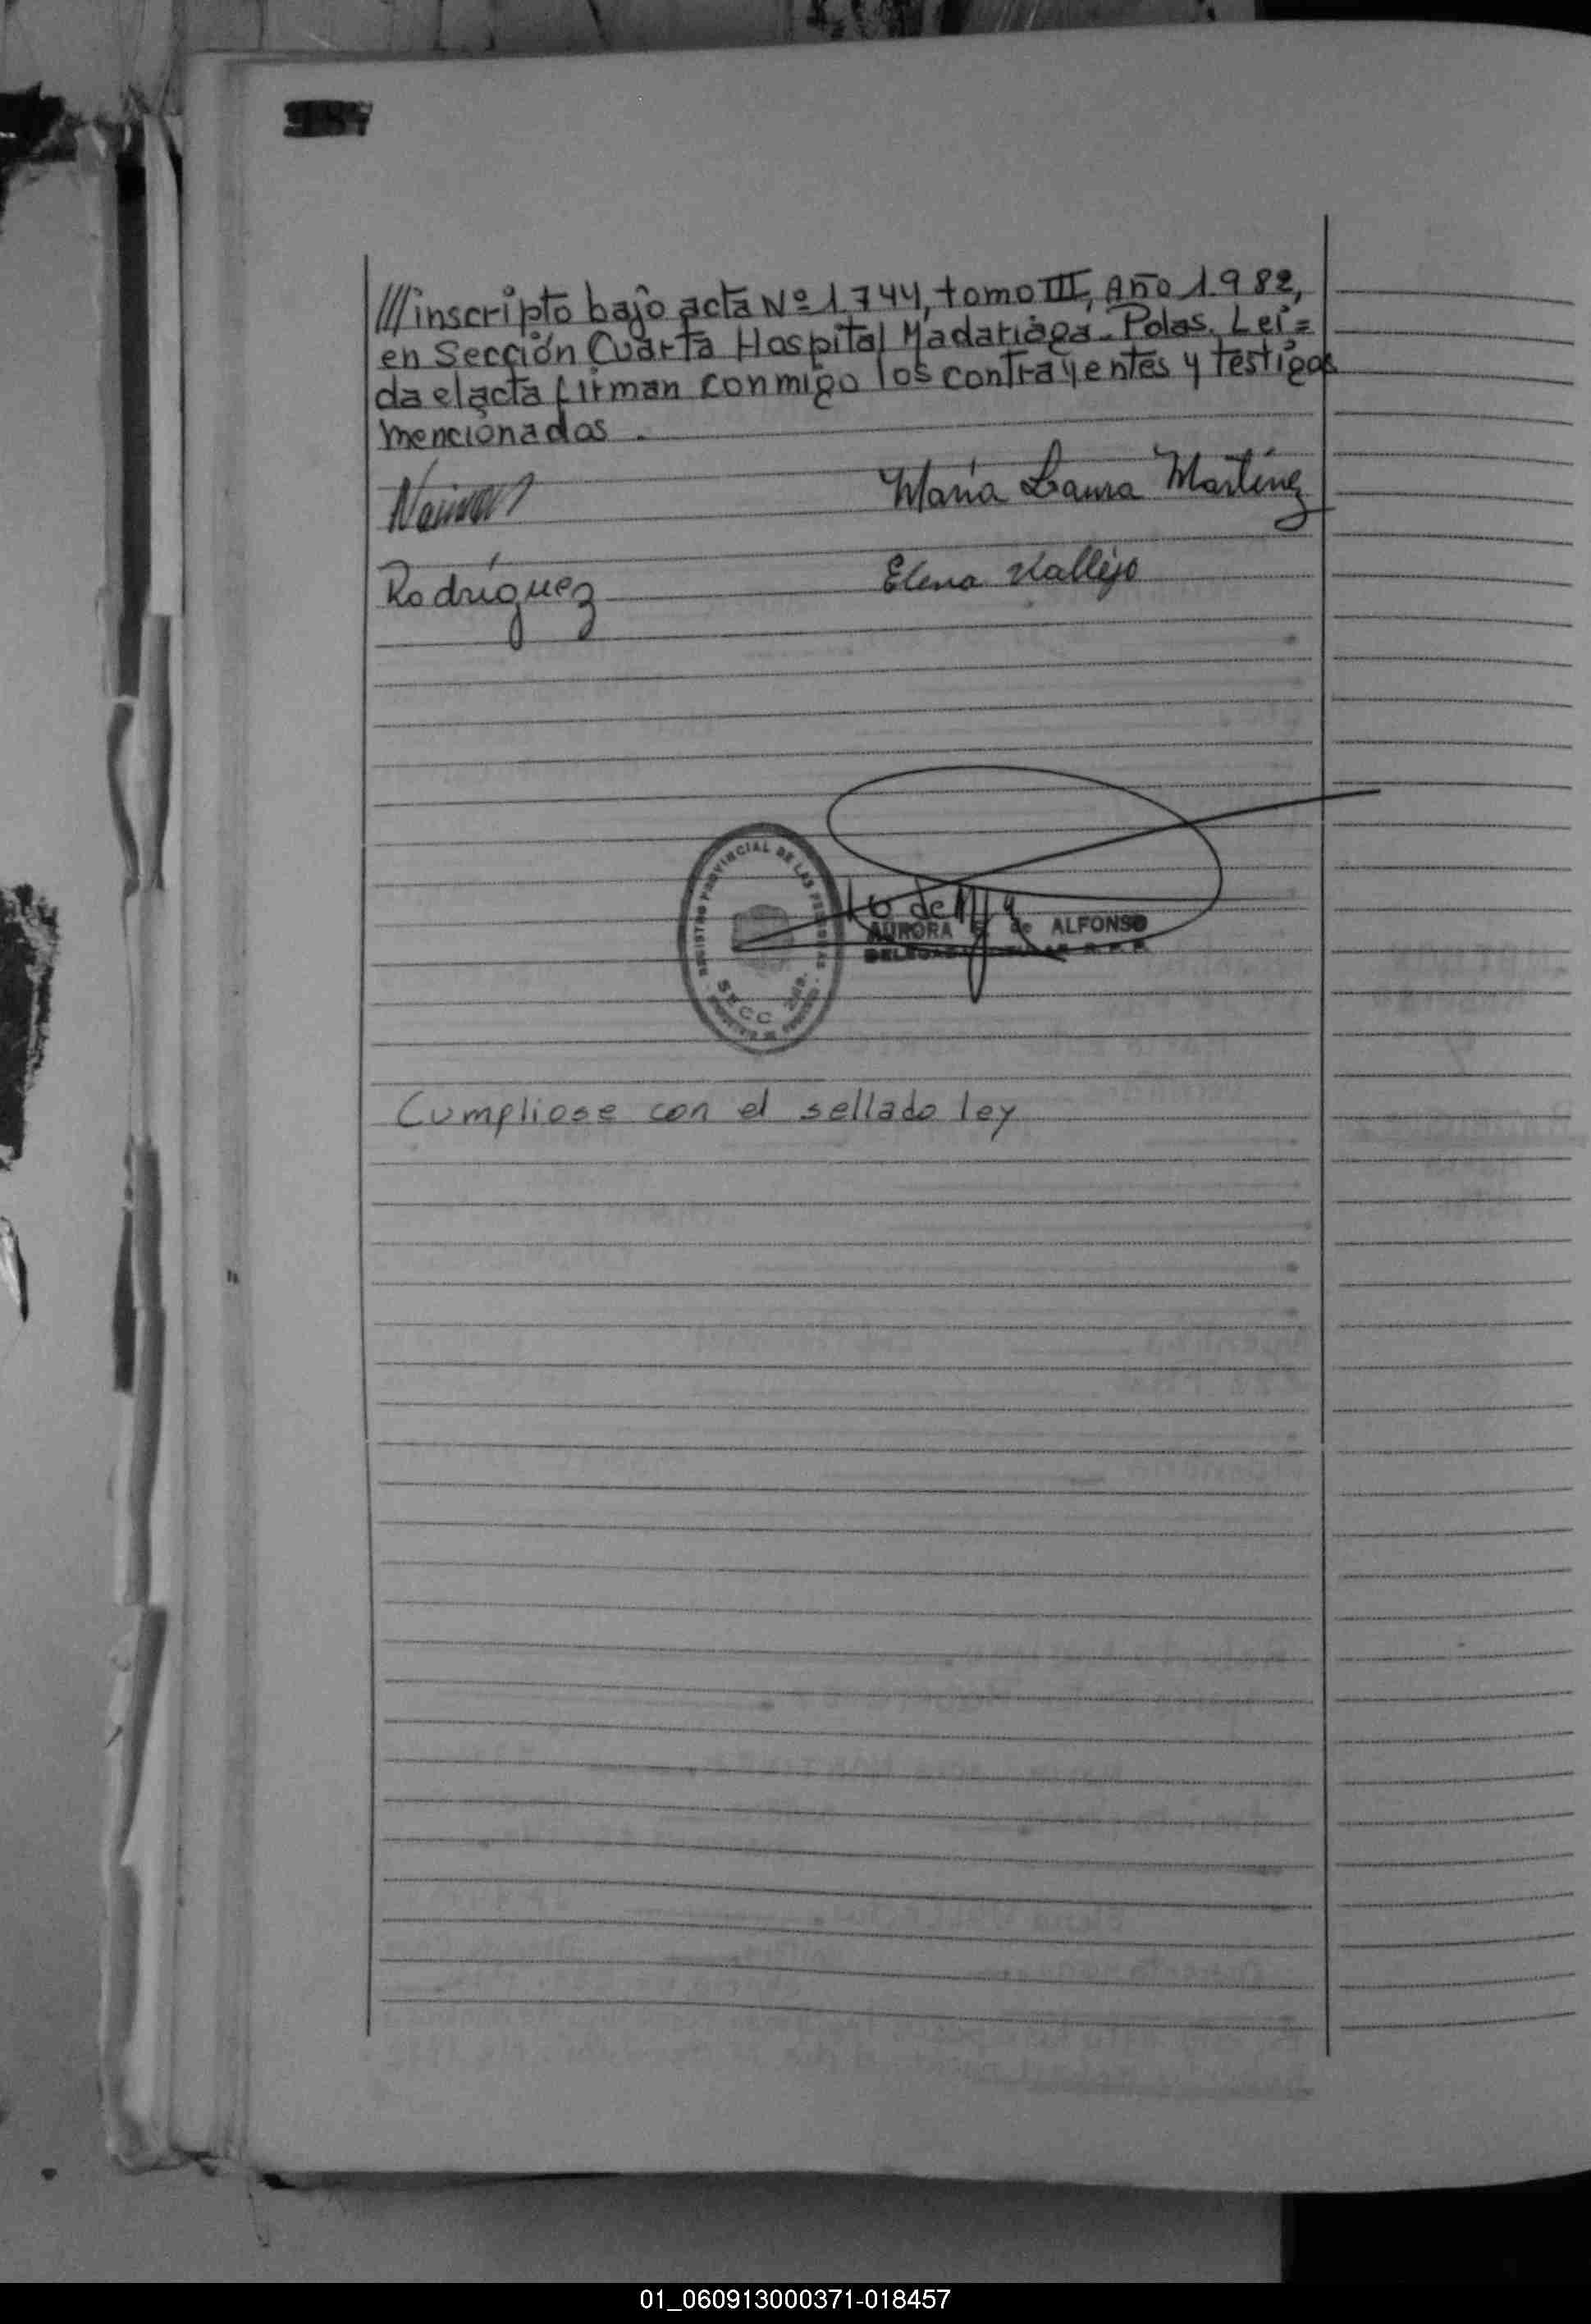 ///inscripto bajo acta Nº 1.744, tomo III, Año 1.982,
en Sección Cuarta Hospital Madariaga. Polas. Leí=
da el acta firman conmigo los contrayentes y testigos
mencionados.
María Laura Martínez
Rodríguez
Elena Vallejo
REGISTRO PROVINCIAL DE LAS PERSONAS
SECC 2da.
AURORA de ALFONSO
R. P. P.
Cumpliose con el sellado ley
01_060913000371-018457